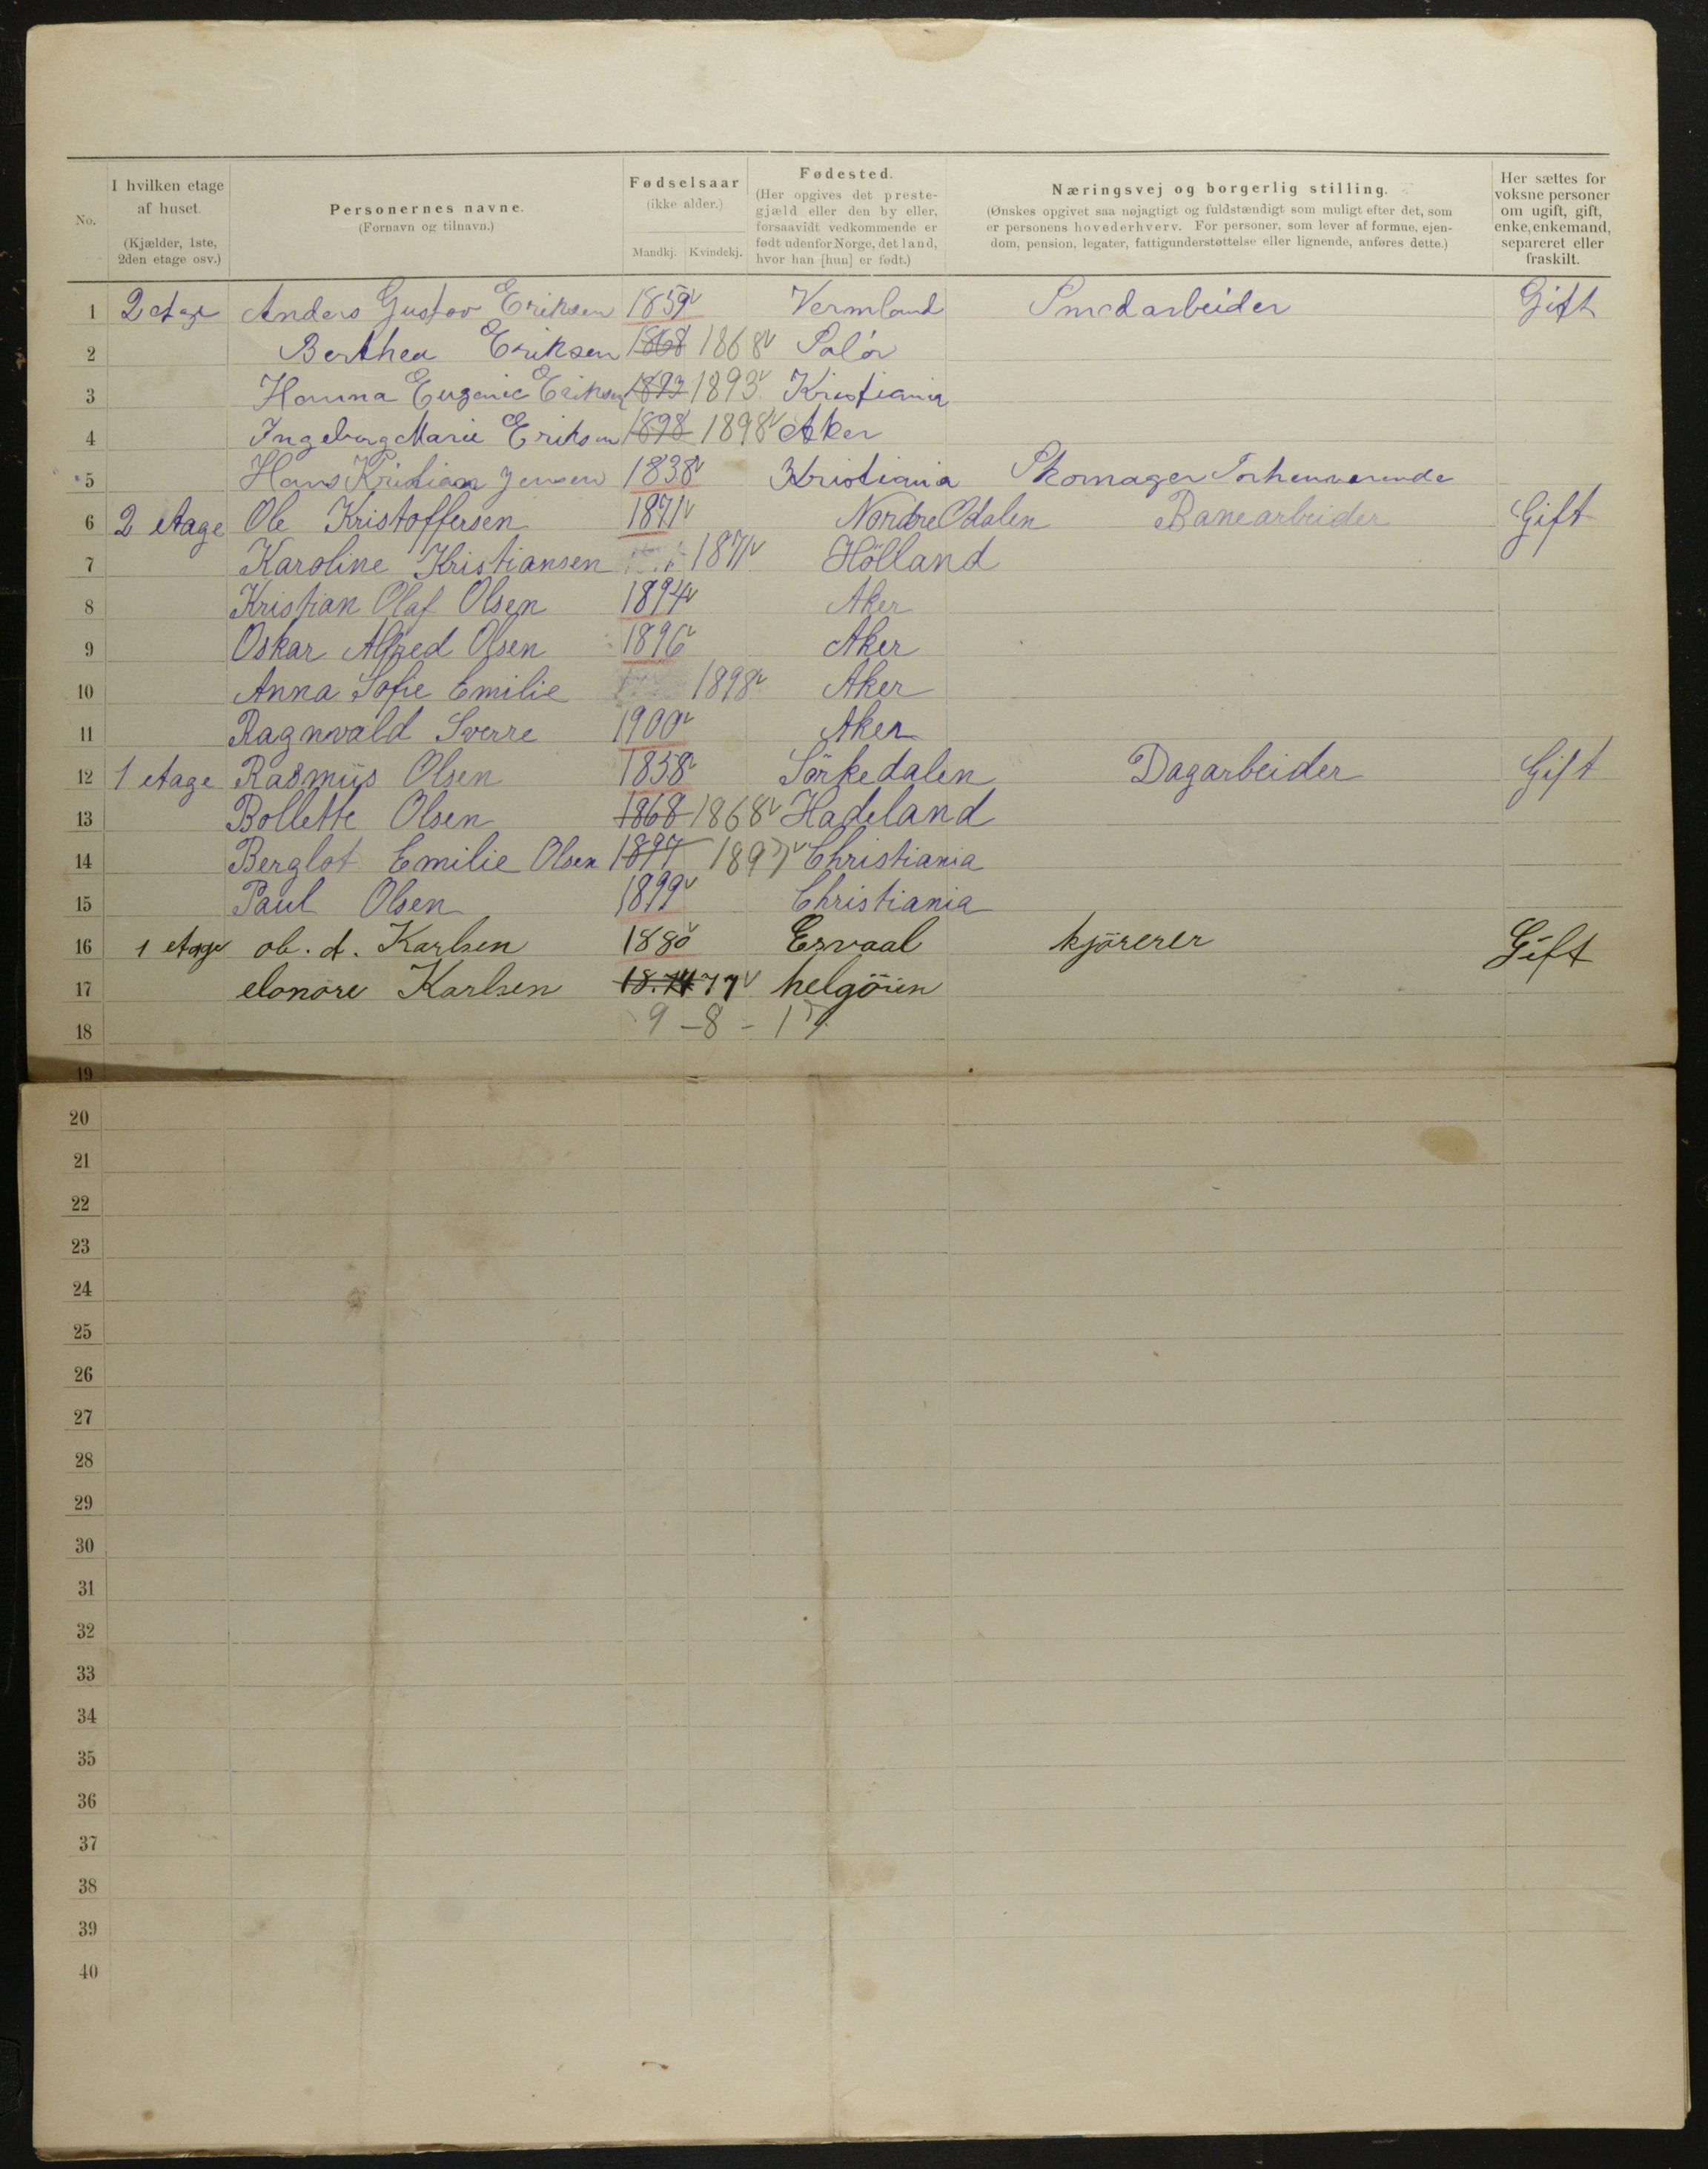 No. I hvilken etage af huset. (Kjælder, 1ste, 2den etage osv.) Personernes navne. (Fornavn og tilnavn.) Fødselsaar (ikke alder.) Mandkj. Kvindekj. Fødested. (Her opgives det prestegjæld eller den by eller, forsaavidt vedkommende er født udenfor Norge, det land, hvor han [hun] er født.) Næringsvej og borgerlig stilling. (Ønskes opgivet saa nøjagtigt og fuldstændigt som muligt efter det, som er personens hovederhverv. For personer, som lever af formue, ejendom, pension, legater, fattigunderstøttelse eller lignende, anføres dette.) Her sættes for voksne personer om ugift, gift, enke, enkemand, separeret eller fraskilt.
1 2 etage Anders Gustav Eriksen 1859 Vermland Smedarbeider Gift
2 Berthea Eriksen 1868 1868 Solör
3 Hanna Eugenie Eriksen 1893 1893 Kristiania
4 Ingeborg Marie Eriksen 1898 1898 Aker
5 Hans Kristian Jensen 1838 Kristiania Skomager Forhenværende
6 2 etage Ole Kristoffersen 1871 Nordre Odalen Banearbeider Gift
7 Karoline Kristiansen 1871 Hölland
8 Kristian Olaf Olsen 1894 Aker
9 Oskar Alfred Olsen 1896 Aker
10 Anna Sofie Emilie 1898 Aker
11 Ragnvald Sverre 1900 Aker
12 1 etage Rasmus Olsen 1858 Sörkedalen Dagarbeider Gift
13 Bollette Olsen 1868 1868 Hadeland
14 Berglot Emilie Olsen 1897 1897 Christiania
15 Paul Olsen 1899 Christiania
16 1 etage ol. A. Karlsen 1880 Esvaal kjörerer Gift
17 elonore Karlsen 18.77 77 helgöien
18 9 - 8 - 17
19
20
21
22
23
24
25
26
27
28
29
30
31
32
33
34
35
36
37
38
39
40